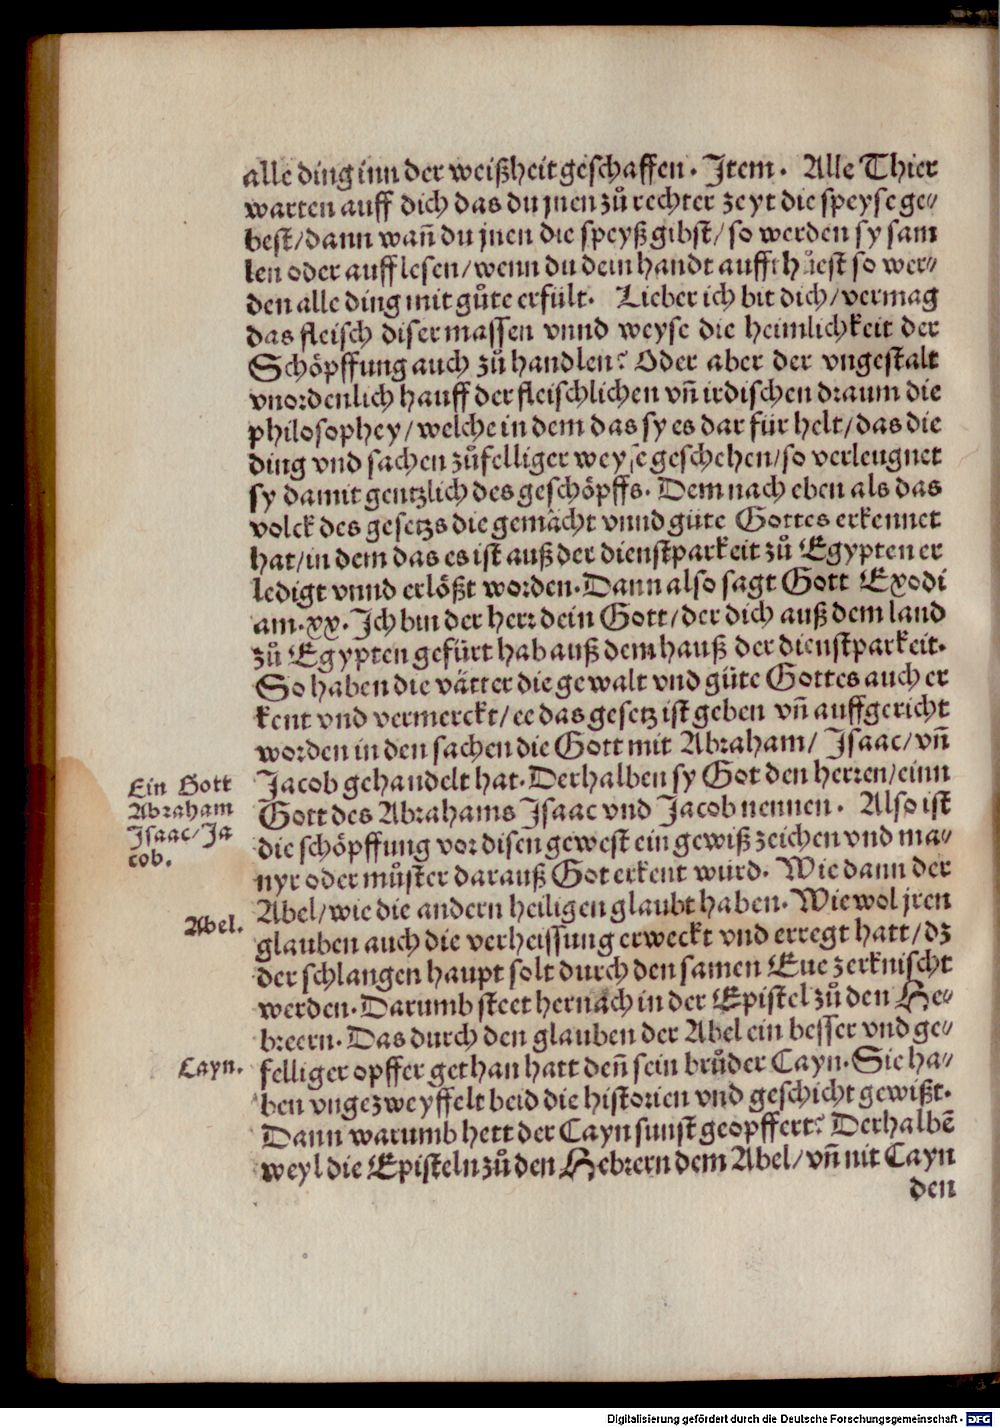 alle ding inn der weißheit geschaffen. Item. Alle Thier
warten auff dich das du jnen zů rechter zeyt die speyse ge-
best/dann wañ du jnen die speyß gibst/ so werden sy sam
len oder aufflesen/wenn du dein handt auffthůest so wer-
den alle ding mit gůte erfült. Lieber ich bit dich/vermag
das fleisch diser massen vnnd weyse die heimlichkeit der
Schöpffung auch zů handlen? Oder aber der vngestalt
vnordenlich hauff der fleischlichen vñ irdischen draum die
philosophey/welche in dem das sy es dar für helt/das die
ding vnd sachen zůfelliger weyse geschehen/so verleugnet
sy damit gentzlich des geschöpffs. Dem nach eben als das
volck des gesetzs die gemächt vnnd güte Gottes erkennet
hat/in dem das es ist auß der dienstparkeit zů Egypten er
ledigt vnnd erlößt worden. Dann also sagt Gott Exodi
am.xx. Ich bin der herr dein Gott/der dich auß dem land
zů Egypten gefürt hab auß dem hauß der dienstparkeit.
So haben die vätter die gewalt vnd güte Gottes auch er
kent vnd vermerckt/ee das gesetz ist geben vñ auffgericht
worden in den sachen die Gott mit Abraham/ Isaac/vñ
Ein Gott
Abraham
Isaac/Ja
cob.
Jacob gehandelt hat. Derhalben sy Got den herren/einn
Gott des Abrahams Isaac vnd Jacob nennen. Also ist
die schöpffung vor disen gewest ein gewiß zeichen vnd ma-
nyr oder můster darauß Got erkent wurd. Wie dann der
Abel.
Abel/wie die andern heiligen glaubt haben. Wie wol jren
glauben auch die verheissung erweckt vnd erregt hatt/dz
der schlangen haupt solt durch den samen Eue zerknischt
werden. Darumb steet hernach in der Epistel zů den He-
breern. Das durch den glauben der Abel ein besser vnd ge-
Cayn.
felliger opffer gethan hatt deñ sein brůder Cayn. Sie ha-
ben vngezweyffelt beid die historien vnd geschicht gewißt.
Dann warumb hett der Cayn sunst geopffert? Derhalbē
weyl die Episteln zů den Hebrern dem Abel/vñ nit Cayn
den
Digitalisierung gefördert durch die Deutsche Forschungsgemeinschaft - DFG